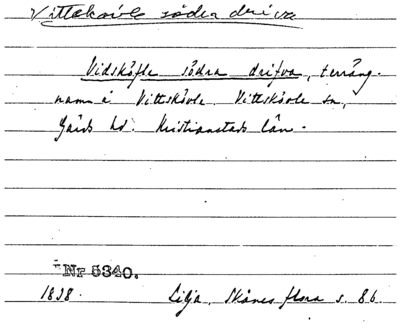 Vittskövle södra driva
Vidsköfle södra drifva, terräng-
namn i Vittskövle. Vittskövle sn,
Gärds hd. Kristianstads län.
Nr 5340.
1838. Lilja, Skånes flora s. 86